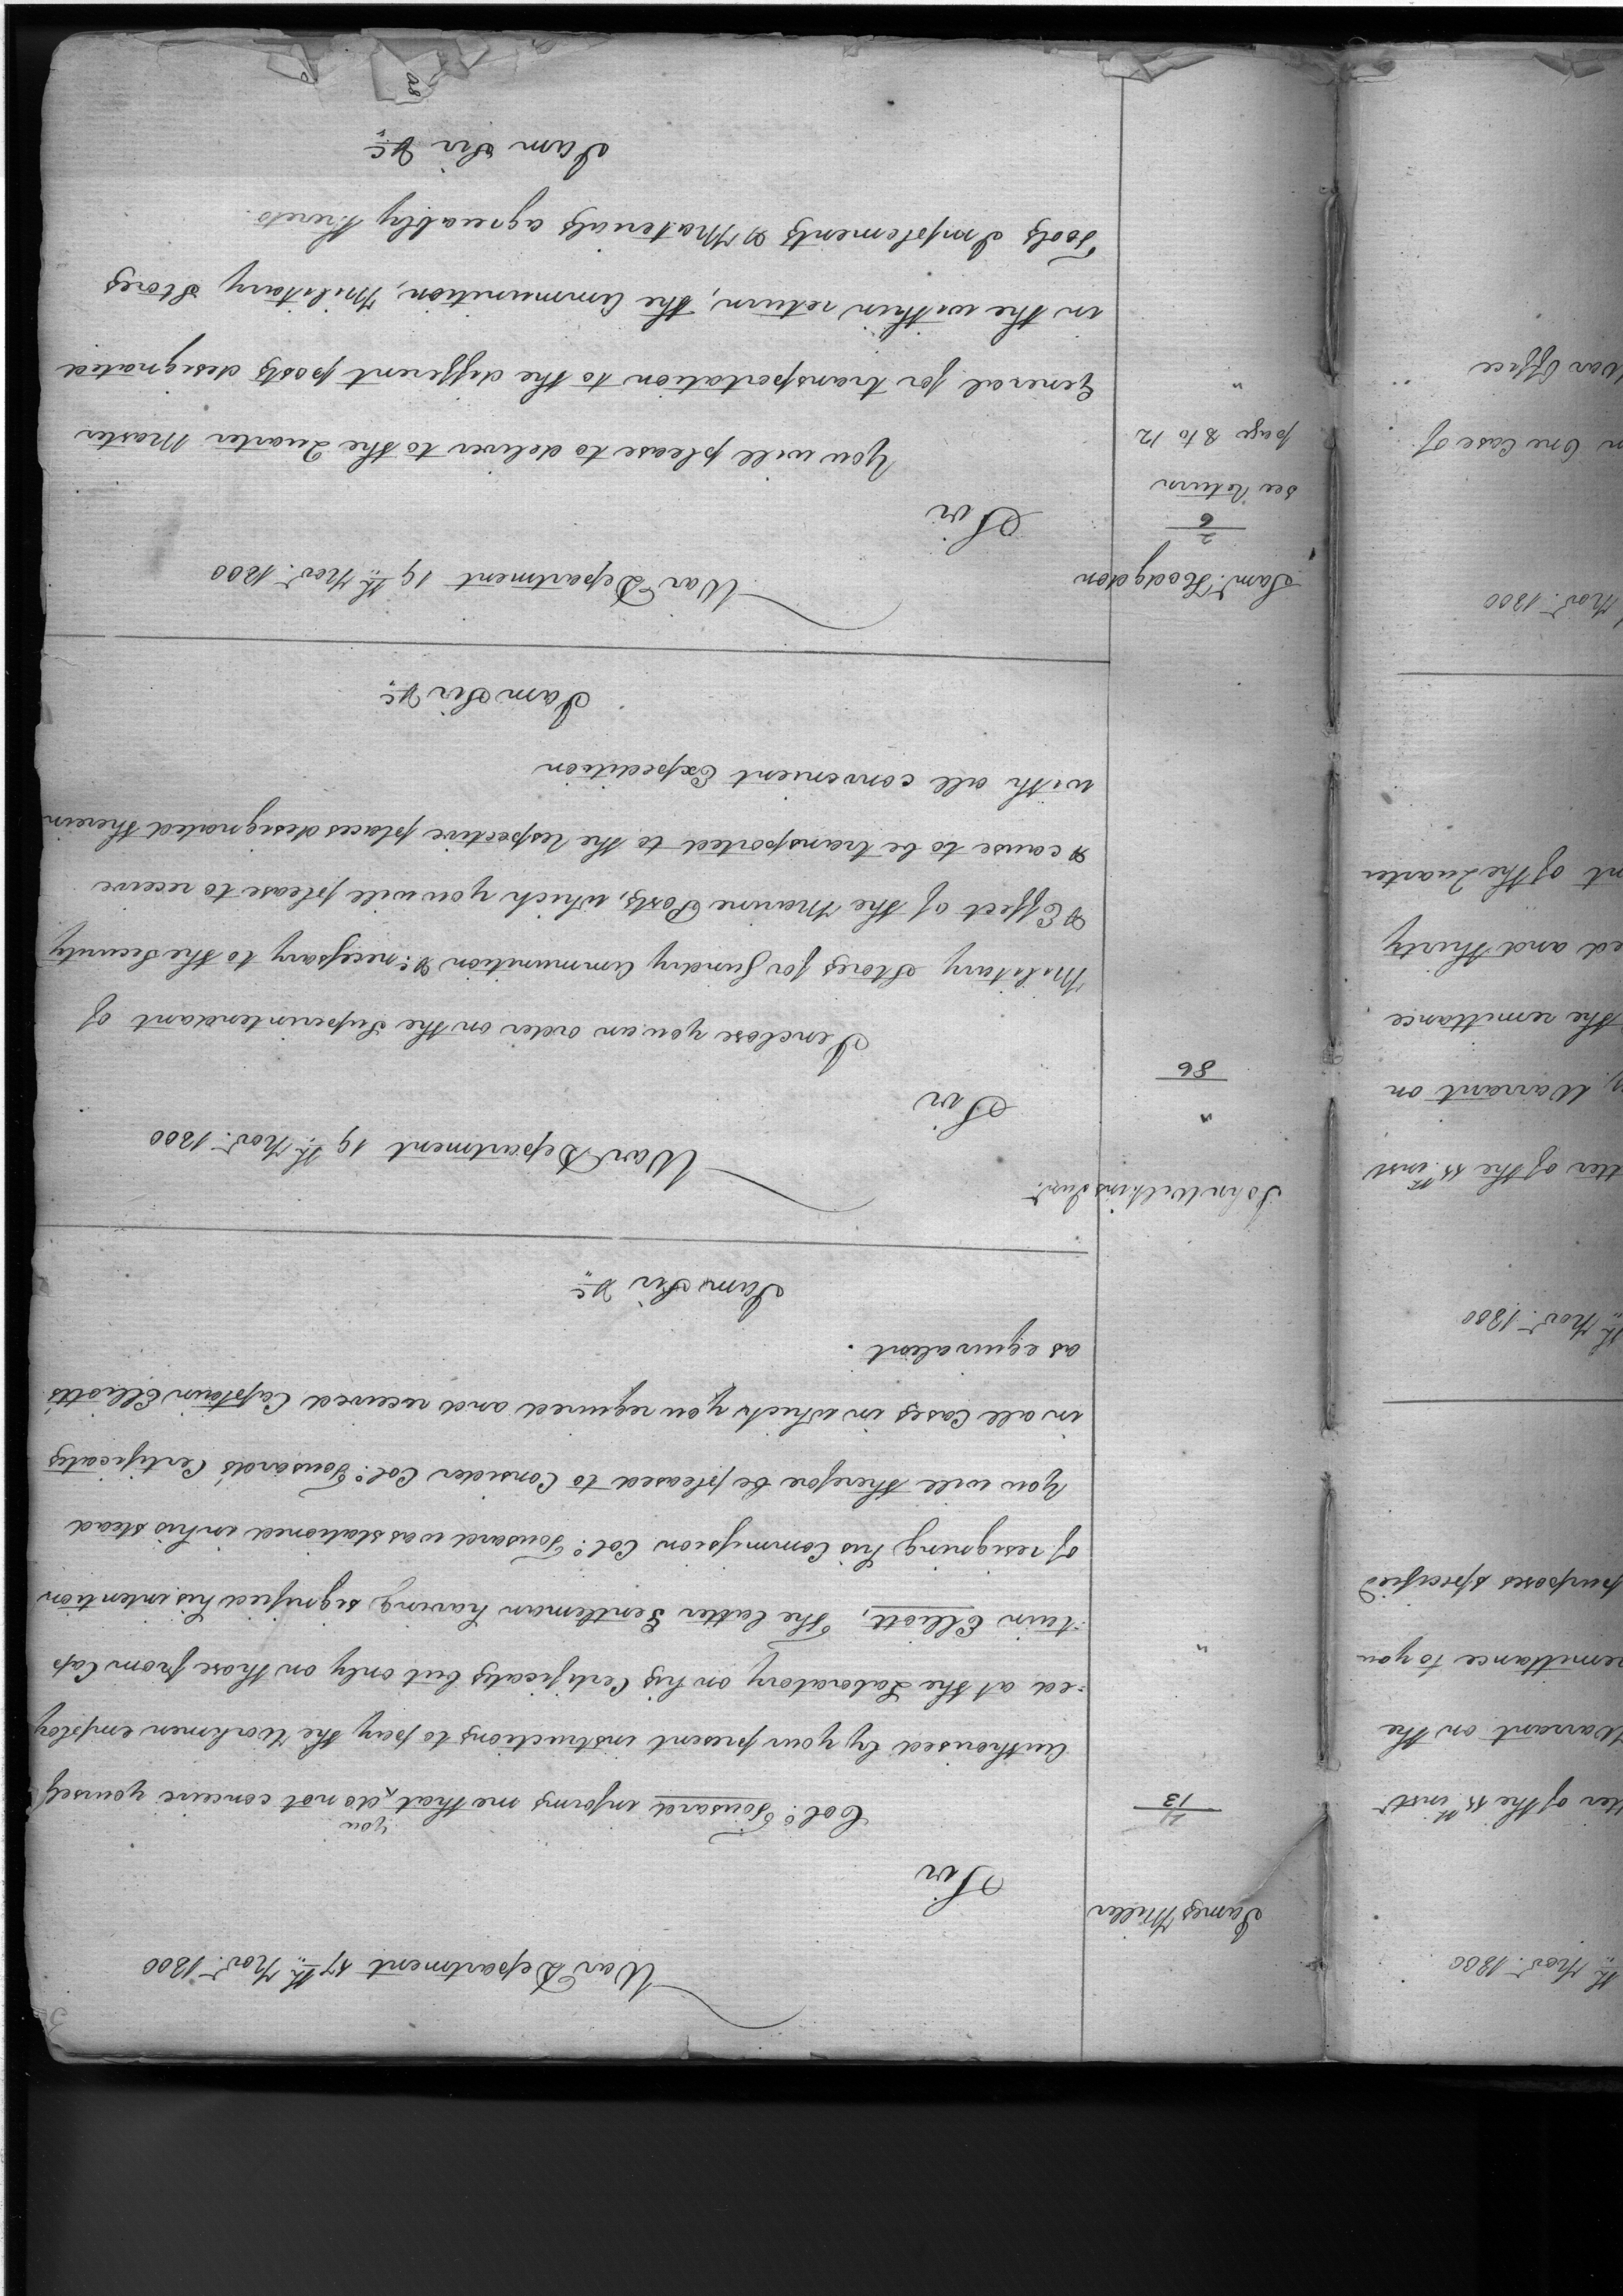 War Department 17th Novr. 1800
James Miller
Sir
4/13
Colo. Tousard informs me that you do not conceive yourself
Authorised by your present instructions to pay the Workmen employ
=ed at the Laboratory on his Certificates but only on those from Cap
=tain Elliott, The latter Gentleman having signified his intention
of resigning his Commission Colo. Tousard was stationed in his stead
you will therefore be pleased to Consider Colo. Tousard's Certificates
in all Cases in which you required and received Captain Elliotts
as equivalent.
I am Sir &c
John Wilkins Junr.
War Department 19th Novr. 1800
"
86
Sir
I enclose you an order on the Superintendant of
Military Stores for Sundry Ammunition &c: necessary to the Security
& Effect of the Marine Posts, which you will please to receive
& cause to be transported to the Respective places designated therein
with all convenient Expedition
I am Sir &c
Saml. Hodgdon
War Department 19th Novr. 1800
2/6
Sir
see Return
page 8 to 12
"
You will please to deliver to the Quarter Master
General for transportation to the different posts designated
in the within return, the Ammunition, Military Stores
Tools Implements & Materials agreeably thereto.
I am Sir &c
th Novr. 1800
tter of the 11th inst
Warrant on the
remittance to you
purposes specified
th Novr. 1800
tter of the 11th inst
Warrant on
the remittance
ed and thirty
nt of the Quarter
Novr. 1800
n One Case of
War Office